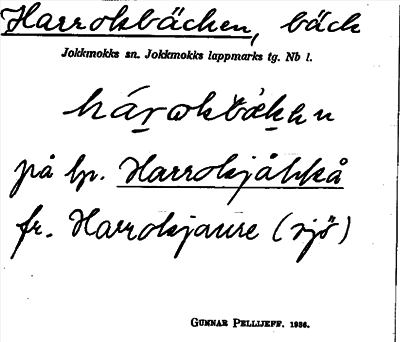 Harrokbäcken, bäck
Jokkmokks sn. Jokkmokks lappmarks tg. Nb l.
på lp. Harrokjåhkå
fr. Harrokjaure (sjö)
GUNNAR PELLIJEFF. 1986.